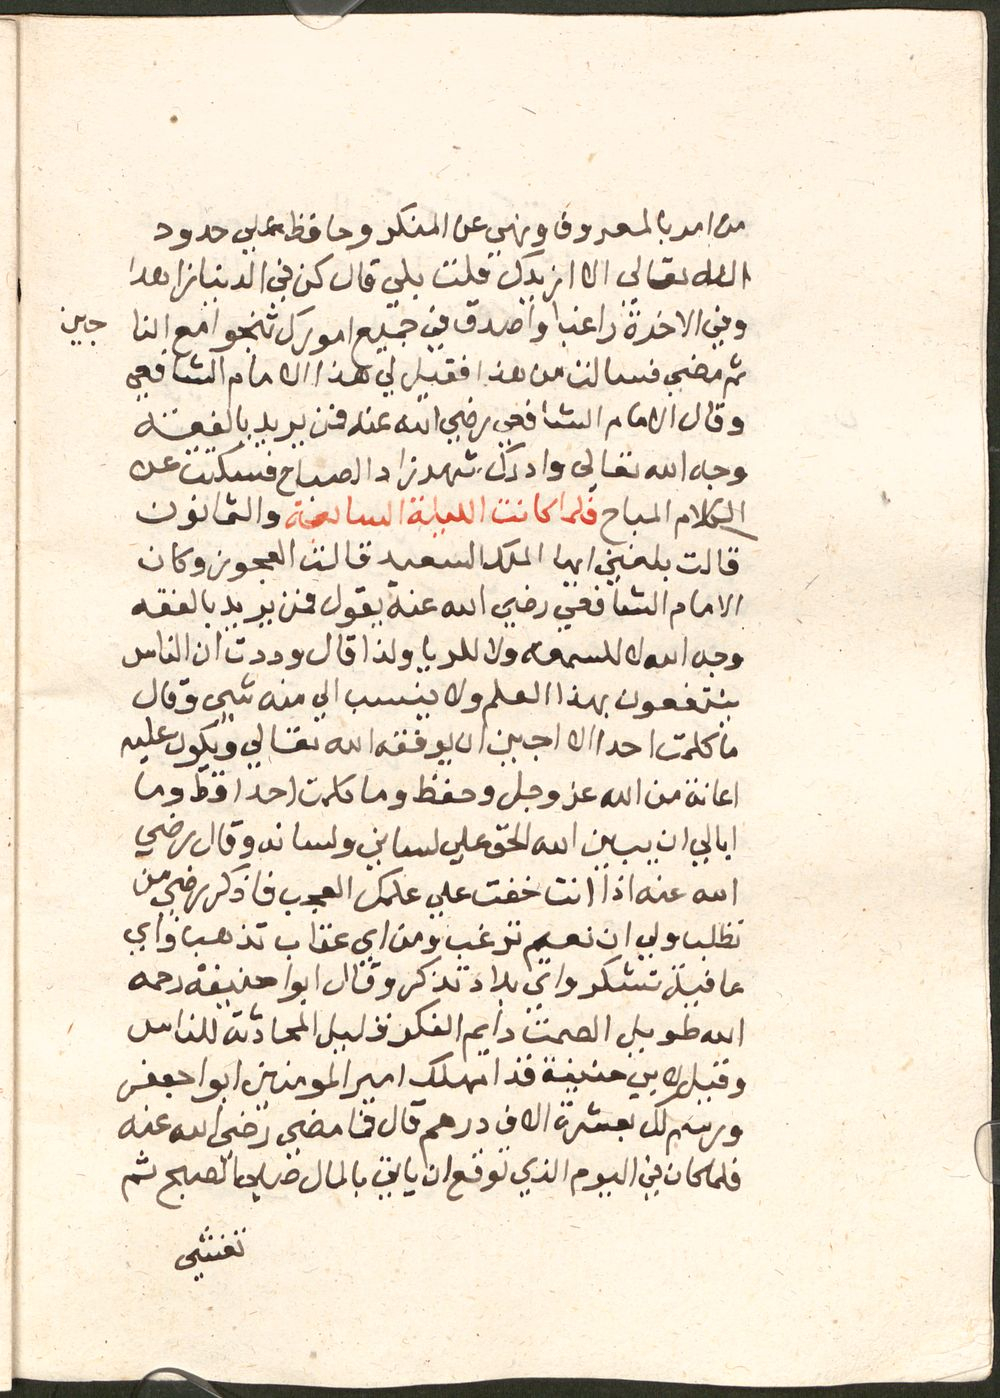 من امر بالمعروف ونهي عن المنكر وحافظ علي حدود
الله تعالى الا ازيدك قلت بلي قال كن في الدنيا زاهدا
وفي الاخرة راغبا واصدق في جميع امورك تنجوا مع النا
جين
ثم مضي فسالت من هذا فقيل لي هذا الامام الشافعي
وقال الامام الشافعي رضي الله عنه فمن يريد بالفقه
وجه الله تعالي وادرك شهرزاد الصباح فسكتت عن
الكلام المباح فلما كانت الليلة السابعة والثمانون
قالت بلغني ايها الملك السعيد قالت العجوز وكان
الامام الشافعي رضي الله عنه يقول فمن يريد بالفقه
وجه الله لا للسمعه ولا للريا ولذا قال وددت ان الناس
ينتفعون بهذا العلم ولا ينسب الي منه شي وقال
ما كلمت احدا الا احببت ان يوفقه الله تعالي ويكون عليه
اعانة من الله عز وجل وحفظ وما كلمت احدا قط وما
ابالي ان يبين الله الحق علي لساني ولسانه وقال رضي
الله عنه اذا انت خفت علي علمك العجب فاذكر رضي من
تطلب ولي ان نعيم ترغب ومن اي عقاب تذهب واي
عافية تشكر واي بلاد تذكر وقال ابوا حنيفة رحمه
الله طويل الصمت دايم الفكر قليل المحادثة للناس
وقيل لابي حنيفة قد امهلك امير المومنين ابوا جعفر
ورسم لك بعشرة الاف درهم قال فما مضي رضي الله عنه
فلما كان في اليوم الذي توقع ان ياتي بالمال صلي الصبح ثم
تغشي